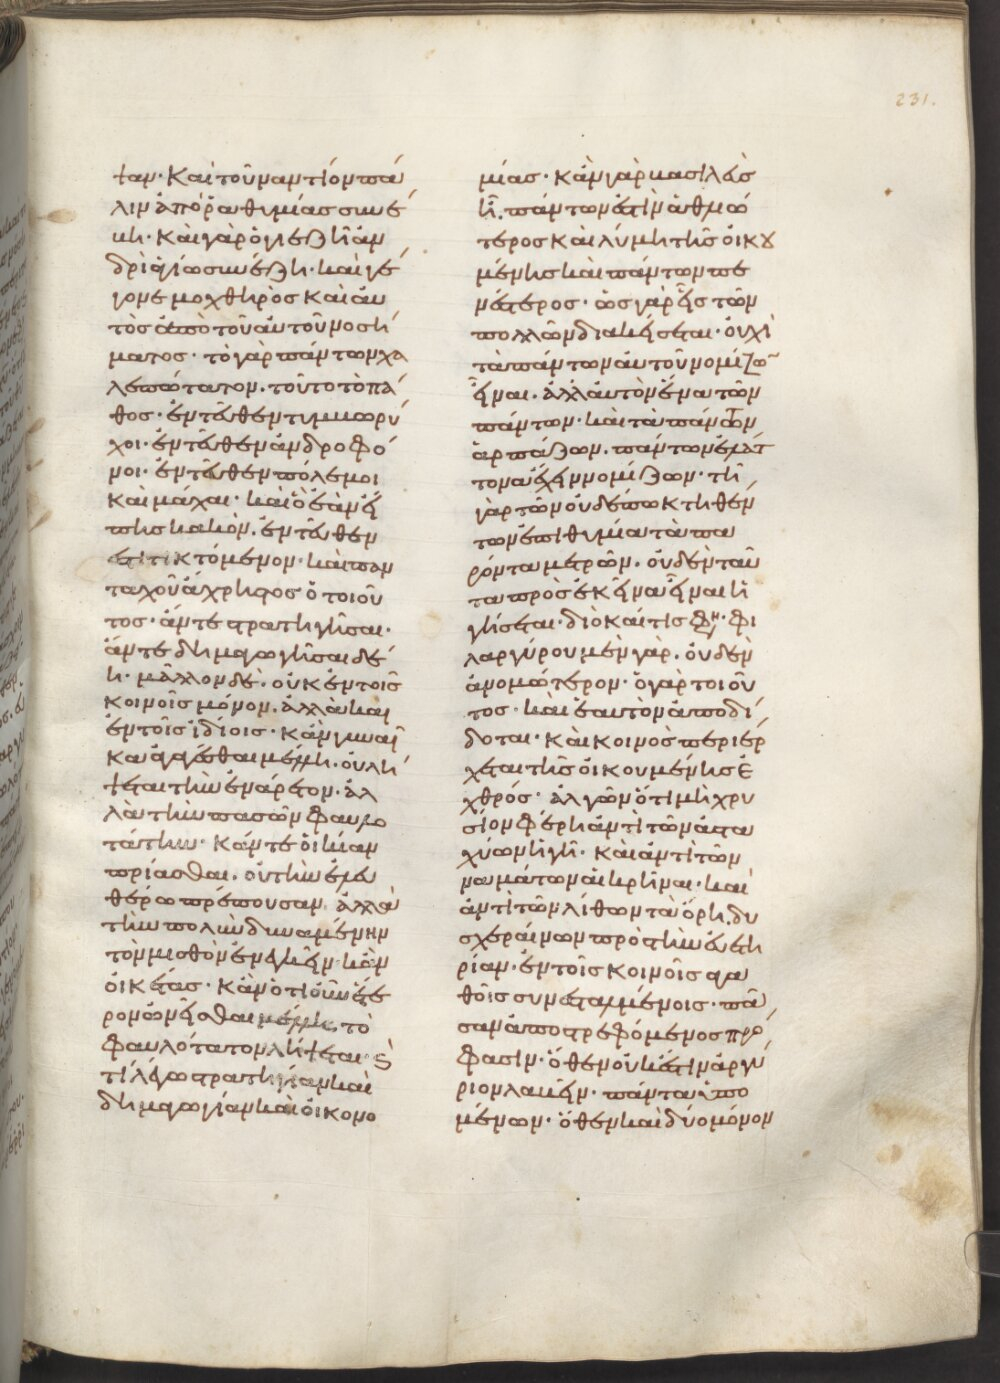 231.
ψαν· Καὶ τοὐναντίον πά
λιν ἀπὸ ῥαθυμίας συνέ
βη· Καὶ γὰρ ὁ γιεζῆ ἀν
δρὶ ἁγίω συνέζη· καὶ γέ
γονε μοχθηρὸς καὶ αὐ
τὸς ἀπὸ τοῦ αὐτοῦ νοσή
ματος· τὸ γὰρ πάντων χα
λεπώτατον. τοῦτο τὸ πά
θος· ἐντεῦθεν τυμβωρύ
χοι· ἐντεῦθεν ἀνδροφό
νοι· ἐντεῦθεν πόλεμοι
καὶ μάχαι· καὶ ὃ ἐὰν εἴ
πης κακὸν. ἐντεῦθεν
ἐστὶ τικτόμενον· καὶ παν
ταχοῦ ἄχρηστος ὁ τοιοῦ
τος· ἄν τε στρατηγῆσαι·
ἄν τε δημαγωγῆσαι δέ
η· μᾶλλον δὲ. οὐκ ἐν τοῖς
κοινοῖς μόνον. ἀλλὰ καὶ
ἐν τοῖς ἰδίοις· Κἂν γυναῖ
κα ἀγαγέσθαι μέλλη· οὐ λή
ψεται τὴν ἐνάρετον· ἀλ
λὰ τὴν πασῶν φαυλο
τάτην· Κἄν τε οἰκίαν
πρίασθαι. οὐ τὴν ἐλευ
θέρω πρέπουσαν ἀλλὰ
τὴν πολὺν δυναμένην
τὸν μισθὸν ἐνεγκεῖν· κἂν
οἰκέτας· Κἂν ὁτιοῦν ἕτε
ρον ὠνεῖσθαι μέλλη, τὸ
φαυλότατον λήψεται· καὶ
τί λέγω στρατηγίαν καὶ
δημαγωγίαν καὶ οἰκονο
μίας· κἂν γὰρ βασιλεὺς
ἦ. πάντων ἐστὶν ἀθλιώ
τερος καὶ λύμη τῆς οἰκου
μένης καὶ πάντων πε
νέστερος· ὡς γὰρ εἷς τῶν
πολλῶν διακείσεται· οὐχὶ
τὰ πάντων αὐτοῦ νομίζων
εἶναι. ἀλλ' αὐτὸν ἕνα τῶν
πάντων· καὶ τὰ πάντων
ἁρπάζων. πάντων ἔλατ
τον ἔχειν νομίζων· τῆ
γὰρ τῶν οὐδέπω κτηθέν
των ἐπιθυμία τὰ πα
ρόντα μετρῶν. οὐδὲν ταῦ
τα πρὸς ἐκεῖνα εἶναι ἡ
γήσεται· διὸ καί τις φησιν· φι
λαργύρου μὲν γὰρ. οὐδὲν
ἀνομώτερον· ὁ γὰρ τοιοῦ
τος· καὶ ἑαυτὸν ἀποδί
δοται· καὶ κοινὸς περιέρ
χεται τῆς οἰκουμένης ἐ
χθρός· ἀλγῶν ὅτι μὴ χρυ
σίον φέρη ἀντὶ τῶν ἀστα
χύων ἡ γῆ· καὶ ἀντὶ τῶν
ναμάτων αἱ κρῆναι· καὶ
ἀντὶ τῶν λίθων τὰ ὄρη. δυ
σχεραίνων πρὸς τὴν εὐετη
ρίαν· ἐν τοῖς κοινοῖς ἀγα
θοῖς συνεσταλμένος· πᾶ
σαν ἀποστρεφόμενος πρό
φασιν· ὅθεν οὐκ ἔστιν ἀργύ
ριον λαβεῖν· πάντα ὑπο
μένων· ὅθεν καὶ δύο μόνον